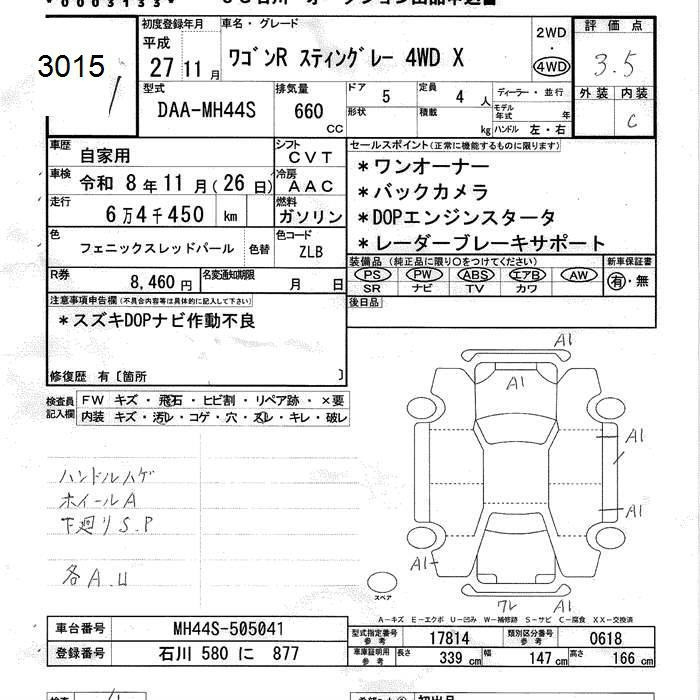 *0003133*
3015
初度登録年月
平成
27 11 月
車名・グレード
ワゴンR スティングレー 4WD X
2WD
・
4WD
評価点
3.5
外装 内装
C
型式
DAA-MH44S
排気量
660
CC
ドア 5
形状
定員 4 人
積載 kg
ディーラー・並行
モデル年式 年
ハンドル 左・右
車歴 自家用
シフト CVT
車検 令和 8 年 11 月(26 日)
冷房 AAC
走行 6 万 4 千 450 km
燃料 ガソリン
色 フェニックスレッドパール 色替
色コード ZLB
R券 8,460 円
名変通知期限 月 日
セールスポイント(正常に機能するものに限ります)
*ワンオーナー
*バックカメラ
*DOPエンジンスタータ
*レーダーブレーキサポート
装備品(純正品に限り○をつけてください)
PS PW ABS エアB AW
SR ナビ TV カワ
新車保証書
有・無
後日品
注意事項申告欄(不具合内容等は具体的に記入して下さい)
*スズキDOPナビ作動不良
修復歴 有〔箇所 〕
検査員記入欄
FW キズ・飛石・ヒビ割・リペア跡・×要
内装 キズ・汚レ・コゲ・穴・スレ・キレ・破レ
ハンドルハゲ
ホイールA
下廻りS.P
各A.U
A1
A1
A1
A1
A1
ワレ A1
スペア
A-キズ E-エクボ U-凹み W-補修跡 S-サビ C-腐食 XX-交換済
車台番号 MH44S-505041
登録番号 石川 580 に 877
型式指定番号 参考 17814
類別区分番号 参考 0618
車庫証明用 参考 長さ 339 cm 幅 147 cm 高さ 166 cm